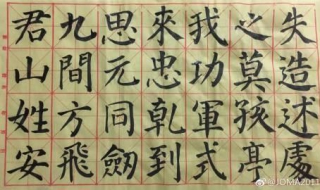 失造述處
之莫孩亭
我功軍式
來忠乹到
思元同劒
九間方飛
君山姓安
@JOMA2011